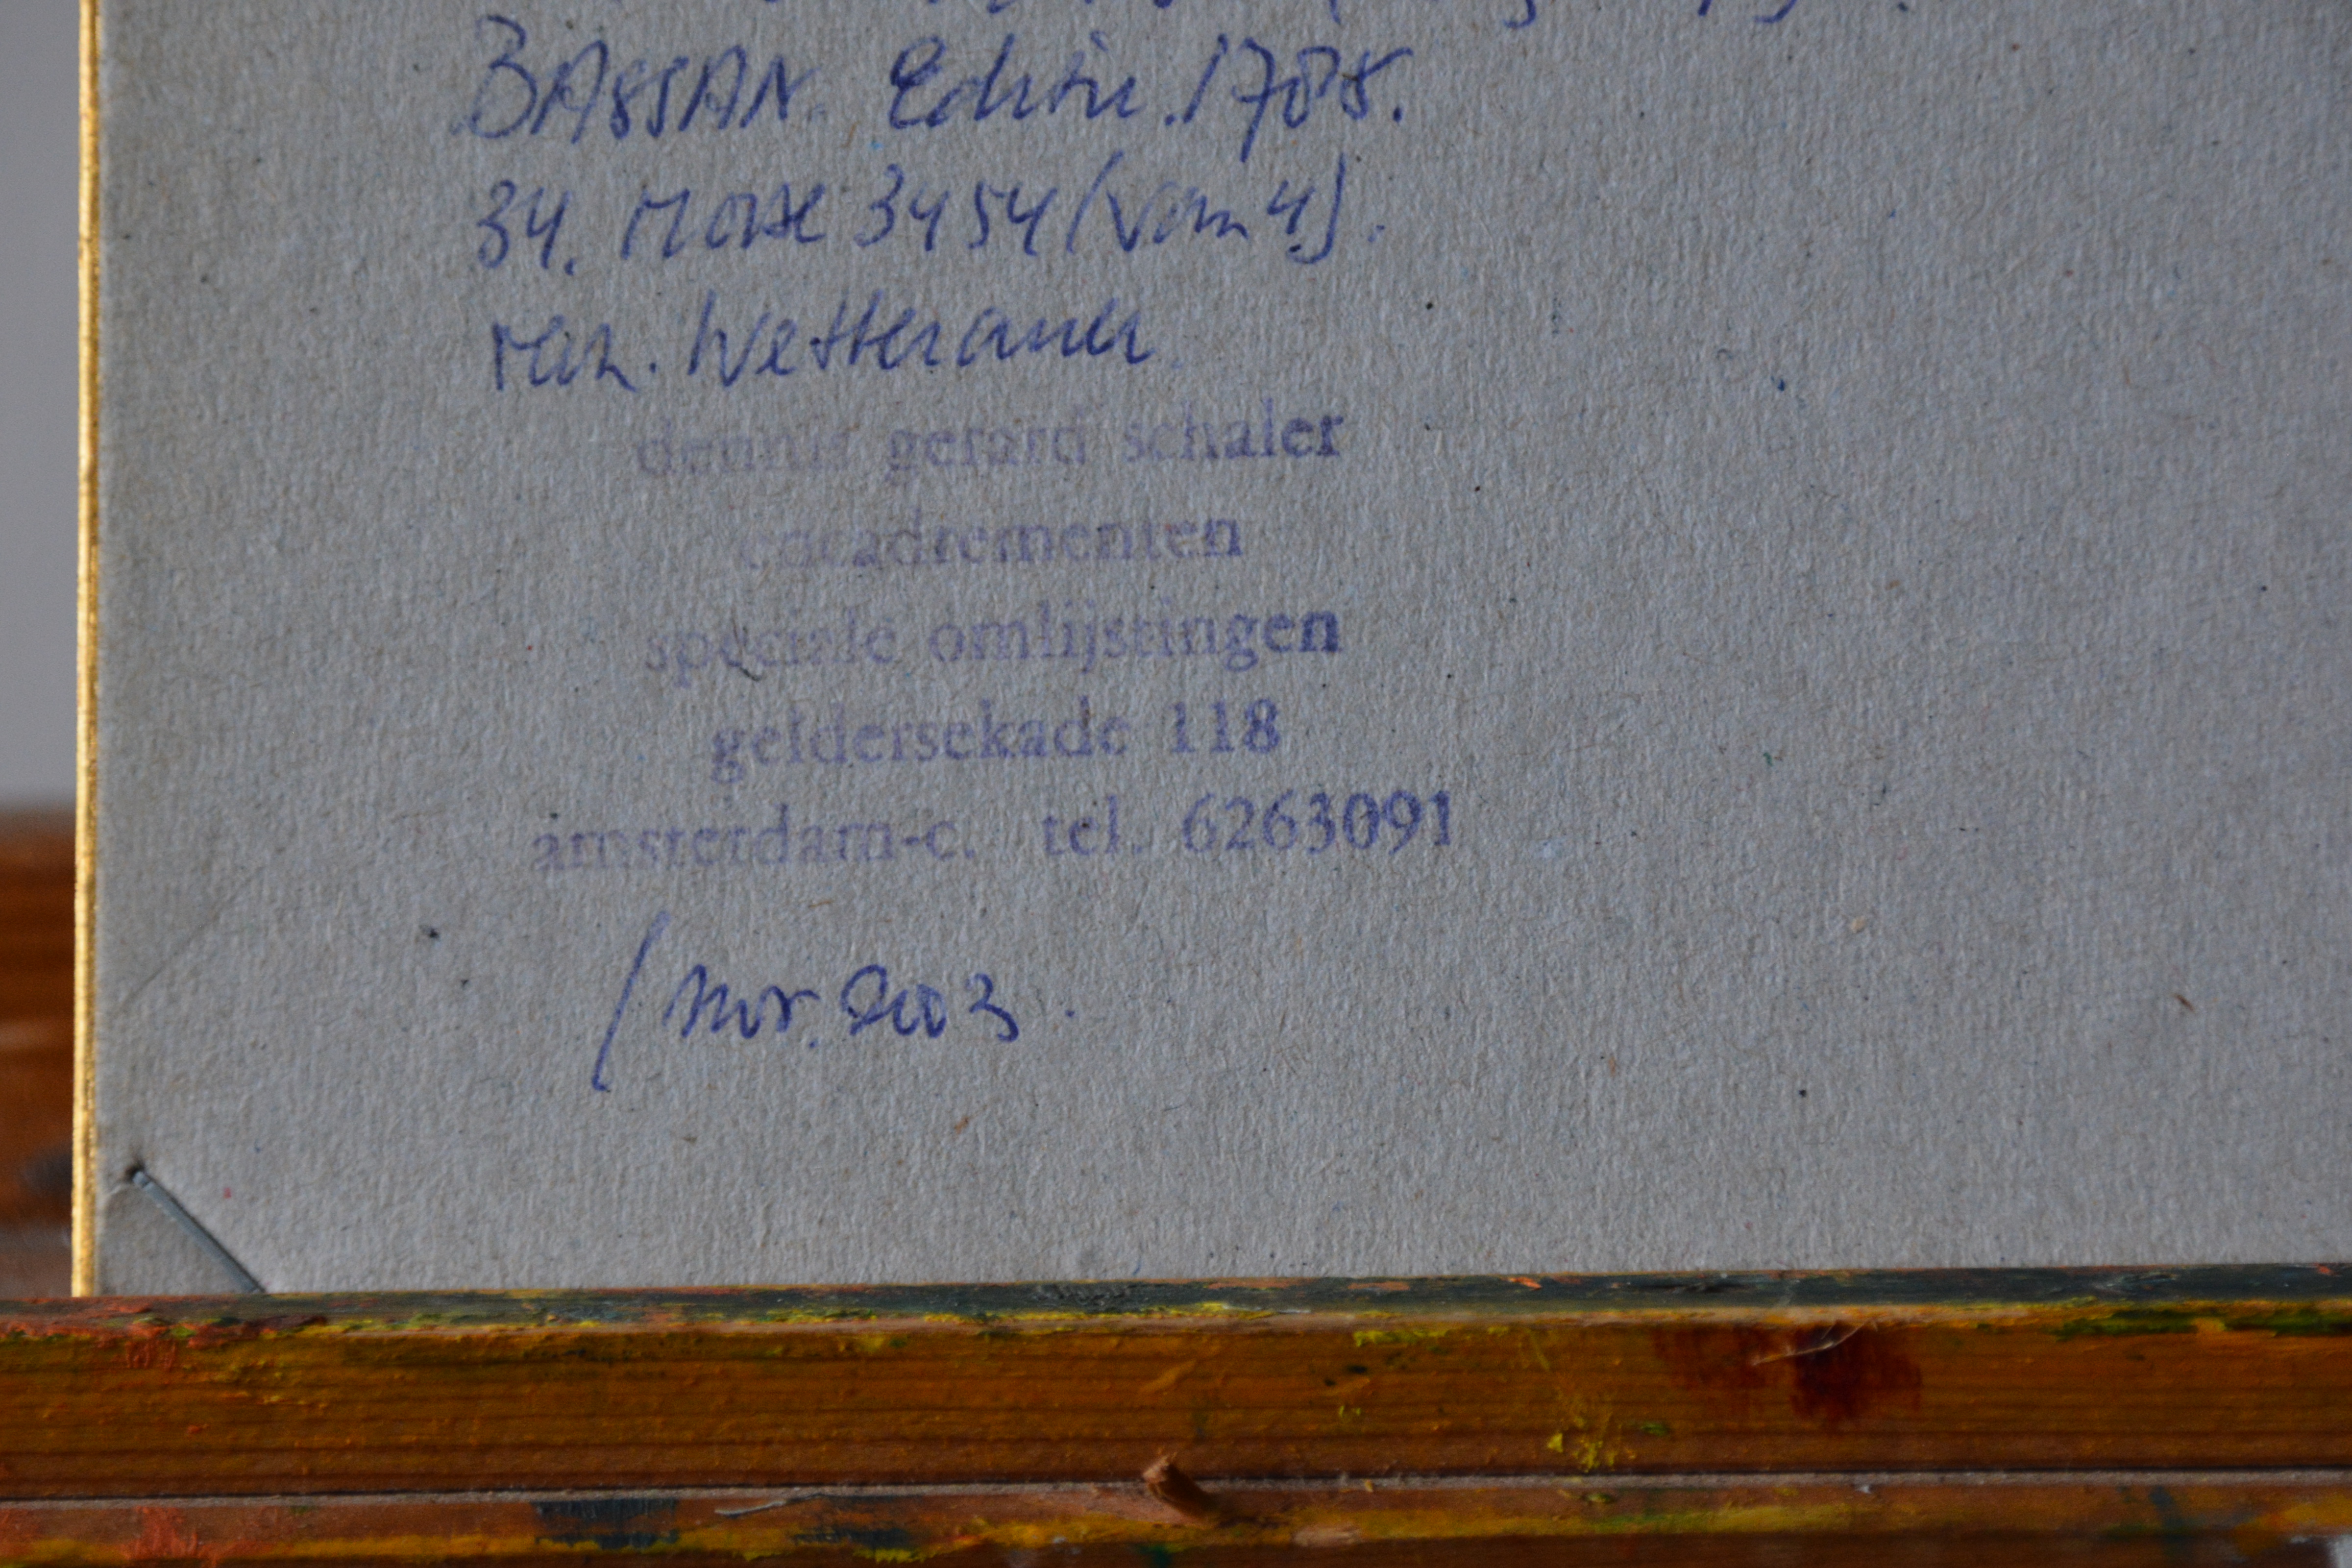 BASSAN. Edition. 1785.
34. 3454 (van 4).
dennis gerard schaler
encadrementen
speciale omlijstingen
geldersekade 118
amsterdam-c. tel. 6263091
/ nov. 2003.